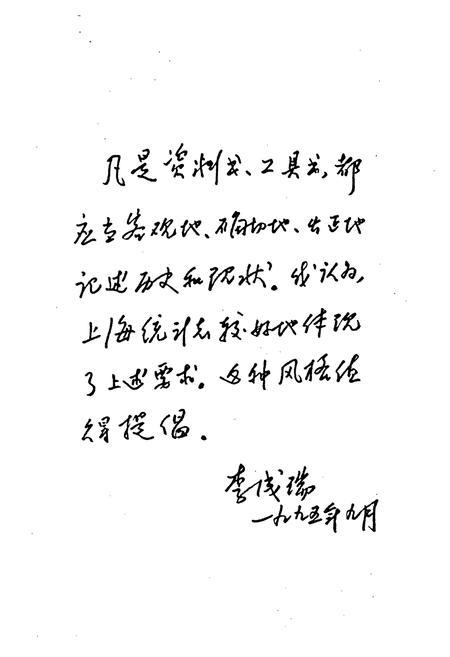 凡是资料书、工具书,都
应当客观地、确切地、公正地
记述历史和现状。我认为,
上海统计志较好地体现
了上述要求。这种风格值
得提倡。
李成瑞
一九九五年九月